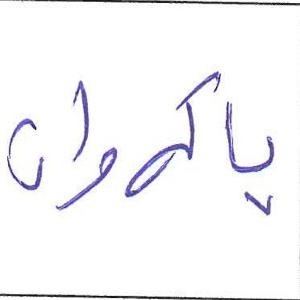 پاکروان